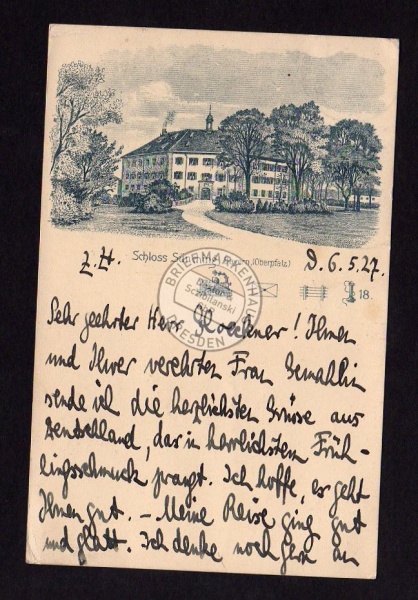 Schloss Sünching, Bayern (Oberpfalz)
z. Zt. D. 6.5.27.
18.
BRIEFMARKENHAUS
DRESDEN
Sehr geehrter Herr ! Ihnen
und Ihrer verehrten Frau Gemahlin
sende ich die herzlichsten Grüsse aus
Deutschland, das in herrlichstem Früh-
lingsschmuck prangt. Ich hoffe, es geht
Ihnen gut. - Meine Reise ging gut
und glatt. Ich denke noch gern an